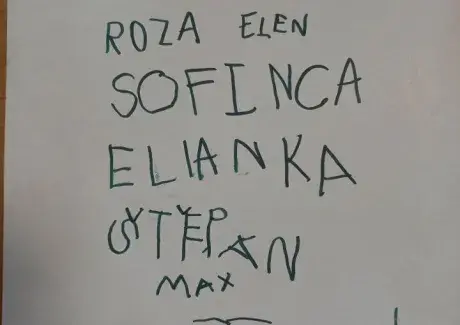 ROZA ELEN
SOFINCA
ELIANKA
ŠTĚPAN
MAX